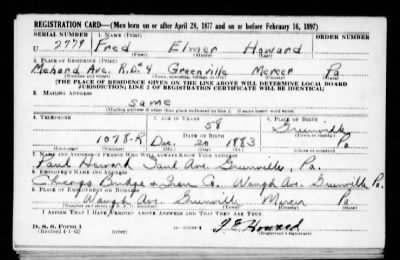 REGISTRATION CARD—(Men born on or after April 28, 1877 and on or before February 16, 1897)
SERIAL NUMBER 1. NAME (Print) ORDER NUMBER
U 2779 Fred Elmer Howard
(First) (Middle) (Last)
2. PLACE OF RESIDENCE (Print)
Ave. R.D. 4 Greenville Mercer Pa
(Number and street) (Town, township, village, or city) (County) (State)
[THE PLACE OF RESIDENCE GIVEN ON THE LINE ABOVE WILL DETERMINE LOCAL BOARD
JURISDICTION; LINE 2 OF REGISTRATION CERTIFICATE WILL BE IDENTICAL]
3. MAILING ADDRESS
Same
[Mailing address if other than place indicated on line 2. If same insert word same]
4. TELEPHONE 5. AGE IN YEARS 6. PLACE OF BIRTH
58 Greenville
DATE OF BIRTH
1078-R Dec. 20 1883 Pa
(Exchange) (Number) (Mo.) (Day) (Yr.) (State or country)
7. NAME AND ADDRESS OF PERSON WHO WILL ALWAYS KNOW YOUR ADDRESS
Paul Howard Ave. Greenville, Pa.
8. EMPLOYER'S NAME AND ADDRESS
Chicago Bridge & Iron Co. Waugh Ave. Greenville Pa.
9. PLACE OF EMPLOYMENT OR BUSINESS
Waugh Ave. Greenville Mercer Pa
(Number and street or R. F. D. number) (Town) (County) (State)
I AFFIRM THAT I HAVE VERIFIED ABOVE ANSWERS AND THAT THEY ARE TRUE.
D. S. S. Form 1
(Revised 4-1-42) (over) Howard
(Registrant's signature)